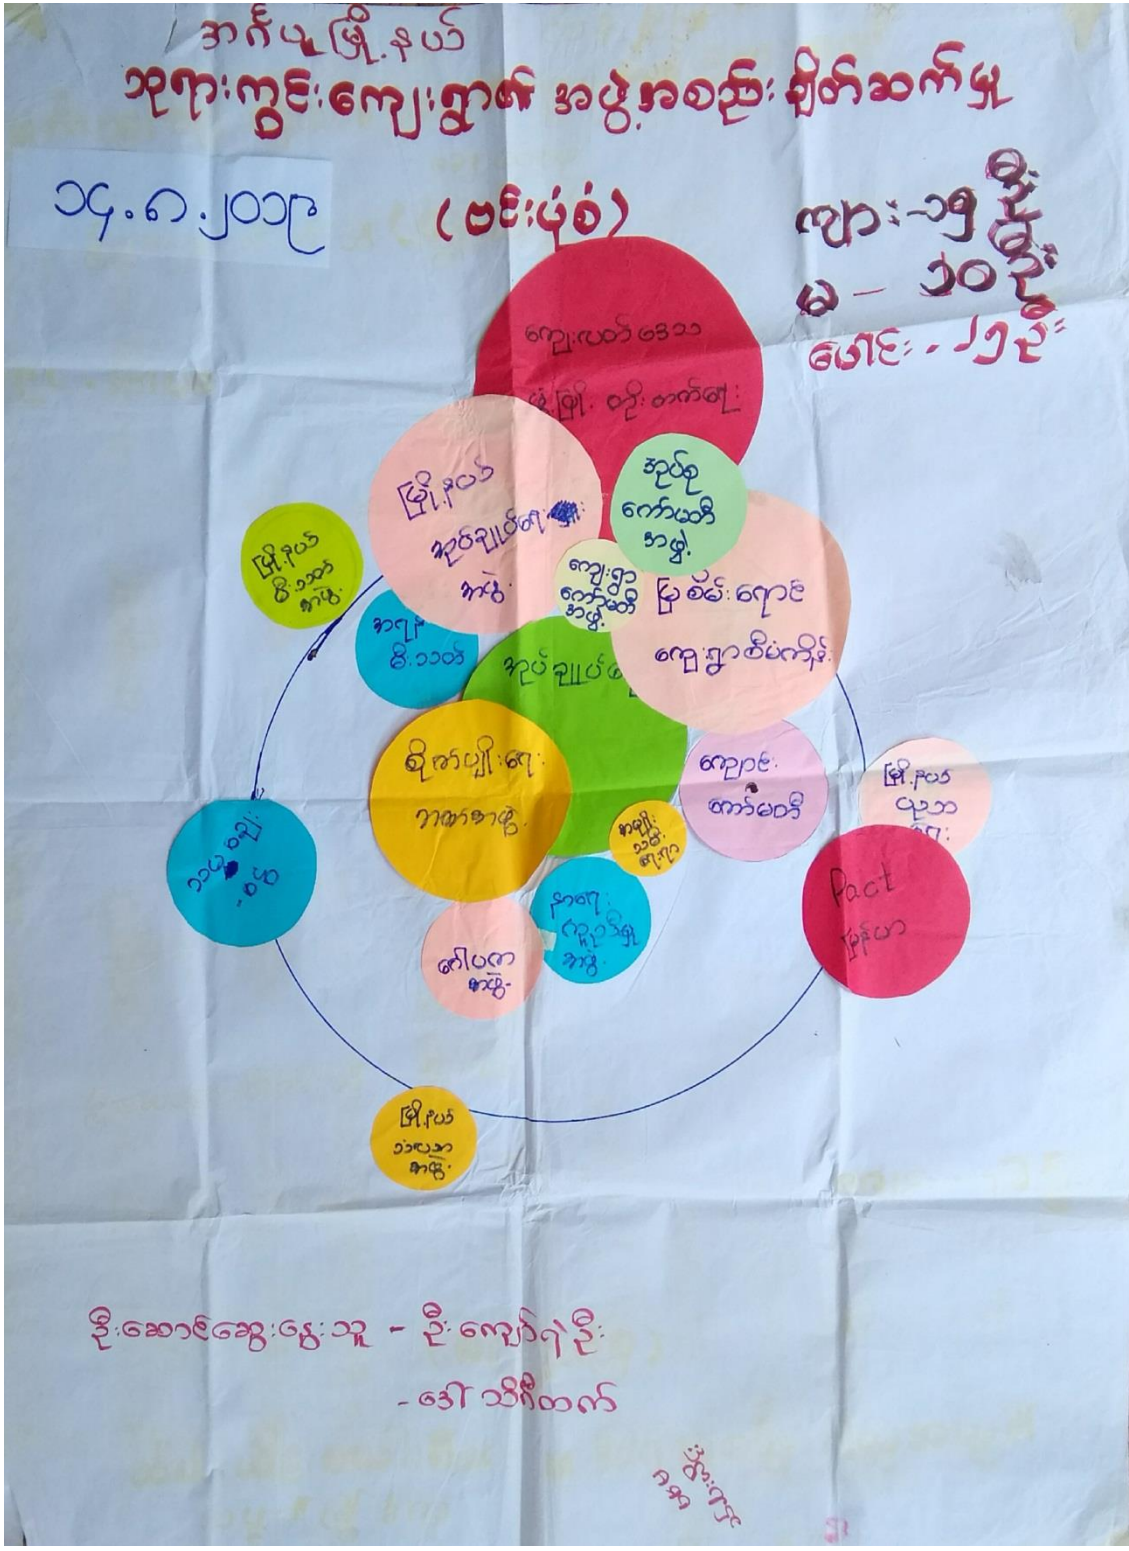 အင်္ဂပူမြို့နယ်
ဘုရားကွင်းကျေးရွာ၏ အဖွဲ့အစည်းချိတ်ဆက်မှု
၁၄.၈.၂၀၁၉
(ဗင်းပုံစံ)
ကျား - ၁၅ ဦး
မ - ၁၀ ဦး
ပေါင်း - ၂၅ ဦး
ကျေးလက်ဒေသ
ဖွံ့ဖြိုး တိုးတက်ရေး
မြို့နယ်
အုပ်ချုပ်ရေး
အဖွဲ့
အုပ်စု
ကော်မတီ
အဖွဲ့
မြို့နယ်
မီးသတ်
အဖွဲ့
ကျေးရွာ
ကော်မတီ
အဖွဲ့
မြစိမ်းရောင်
ကျေးရွာစီမံကိန်း
အရန်
မီးသတ်
အုပ်ချုပ်ရေး
စိုက်ပျိုးရေး
ဘဏ်အဖွဲ့
ကျောင်း
ကော်မတီ
မြို့နယ်
ပညာ
ရေး
အမျိုး
သမီး
ရေးရာ
Pact
မြန်မာ
နာရေး
ကူညီမှု
အဖွဲ့
ဂေါပက
အဖွဲ့
မြို့နယ်
သံဃာ
အဖွဲ့
ဦးဆောင်ဆွေးနွေးသူ - ဦးကျော်ရဲဦး
- ဒေါ်သီရိတက်